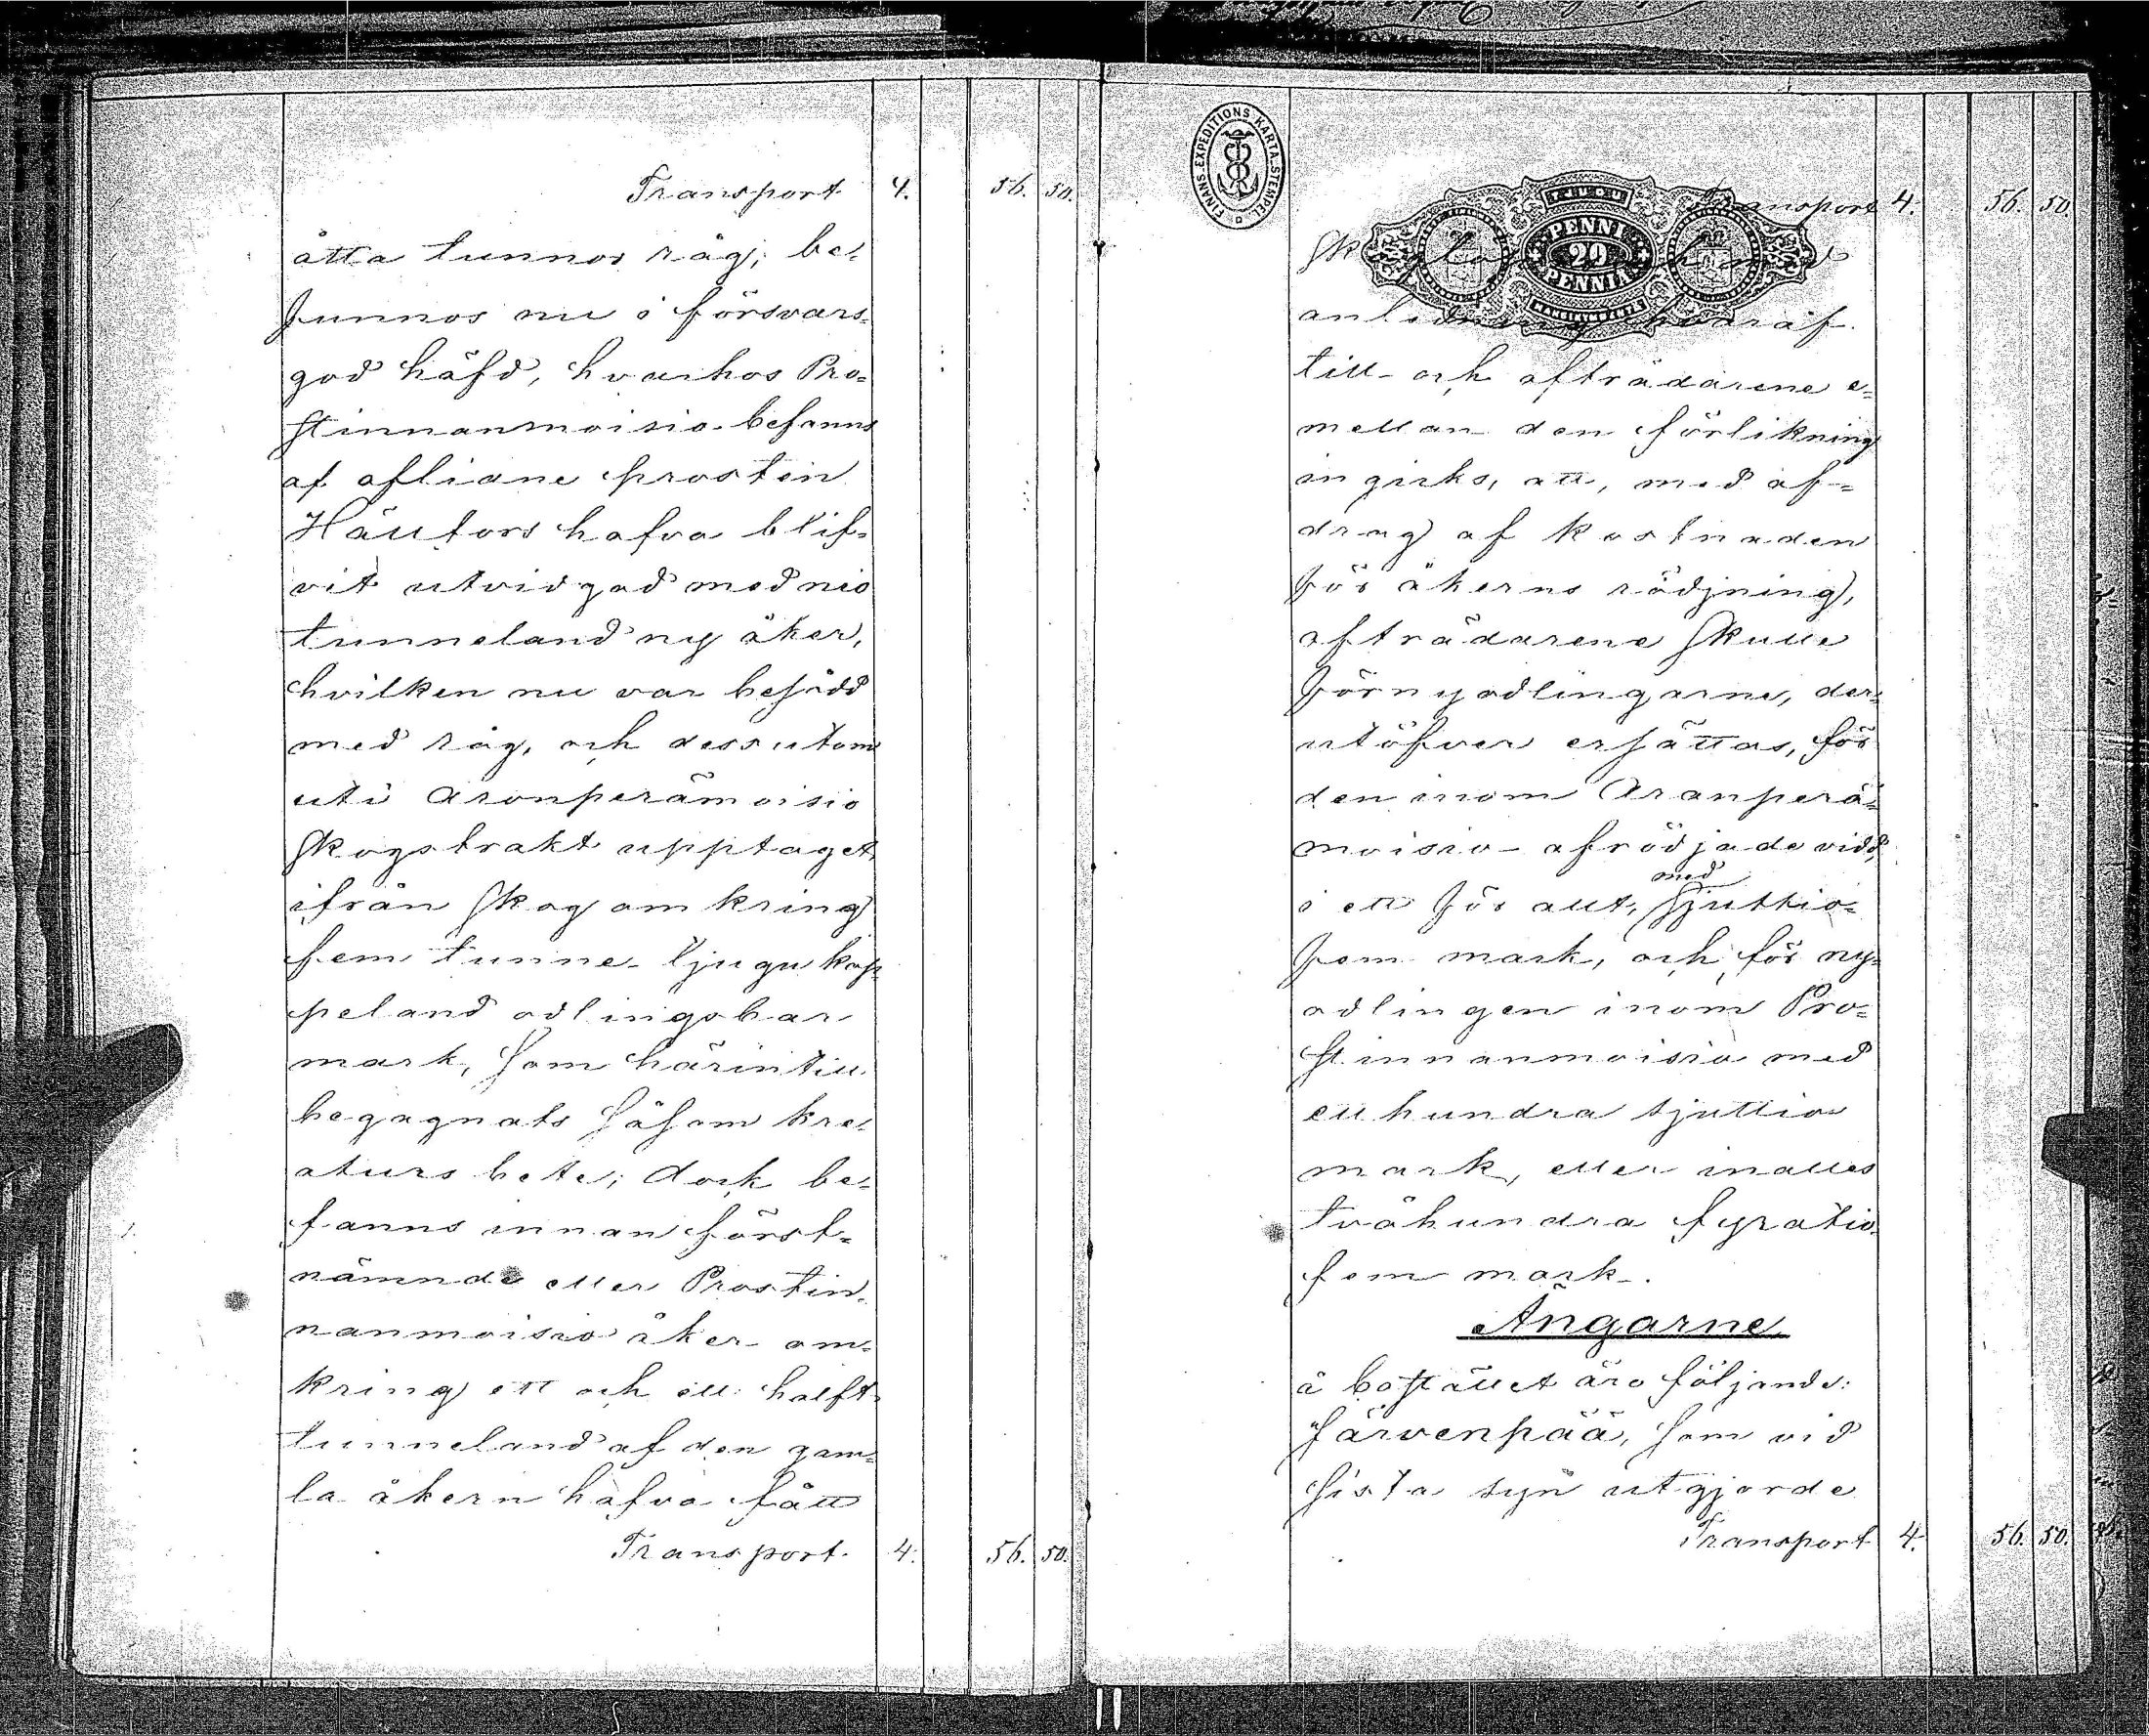 Transport 4. 56. 50.
åtta tunnor råg; be-
funnos nu i försvars-
god häfd, hvarhos Pro-
stinnanmoisio befanns
af aflidne prosten
Hällfors hafva blif-
vit utvidgad med nio
tunneland ny åker,
hvilken nu var besådd
med råg, och dessutom
uti Aronperämoisio
skogstrakt upptaget
ifrån skog omkring
fem tunne- tjugu kap-
peland odlingsbar
mark, som härintill
begagnats såsom kre-
aturs bete; dock be-
fanns innan först-
nämnde eller Prostin-
nanmoisio åker om-
kring ett och ett halft
tunneland af den gam-
la åkern hafva fått
Transport. 4. 56. 50.
FINANS-EXPEDITIONS KARTA-STEMPEL
Transport 4. 56. 50
PENNI
20
PENNIÄ
anledning hvaraf
till- och afträdarene e-
mellan den förlikning
ingicks, att, med af-
drag af kostnaden
för åkerns rödjning,
afträdarene skulle
för nyodlingarne, der-
utöfver ersättas, för
den inom Aronperä-
moisio afrödjade vidd,
i ett för allt, med sjuttio-
fem mark, och för ny-
odlingen inom Pro-
stinnanmoisio med
etthundra sjuttio
mark, eller inalles
tvåhundra fyratio-
fem mark.
Ängarne
å bostället äro följande:
Järvenpää, som vid
sista syn utgjorde
Transport 4. 56. 50.